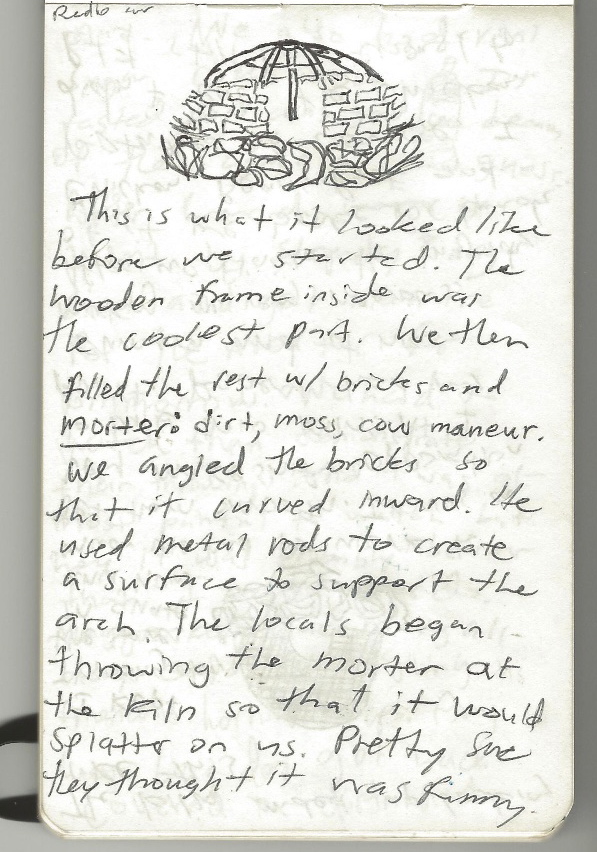 This is what it looked like
before we started. The
wooden frame inside was
the coolest part. We then
filled the rest w/ bricks and
morter: dirt, moss, cow maneur.
We angled the bricks so
that it curved inward. He
used metal rods to create
a surface to support the
arch. The locals began
throwing the morter at
the kiln so that it would
splatter on us. Pretty sure
they thought it was funny.